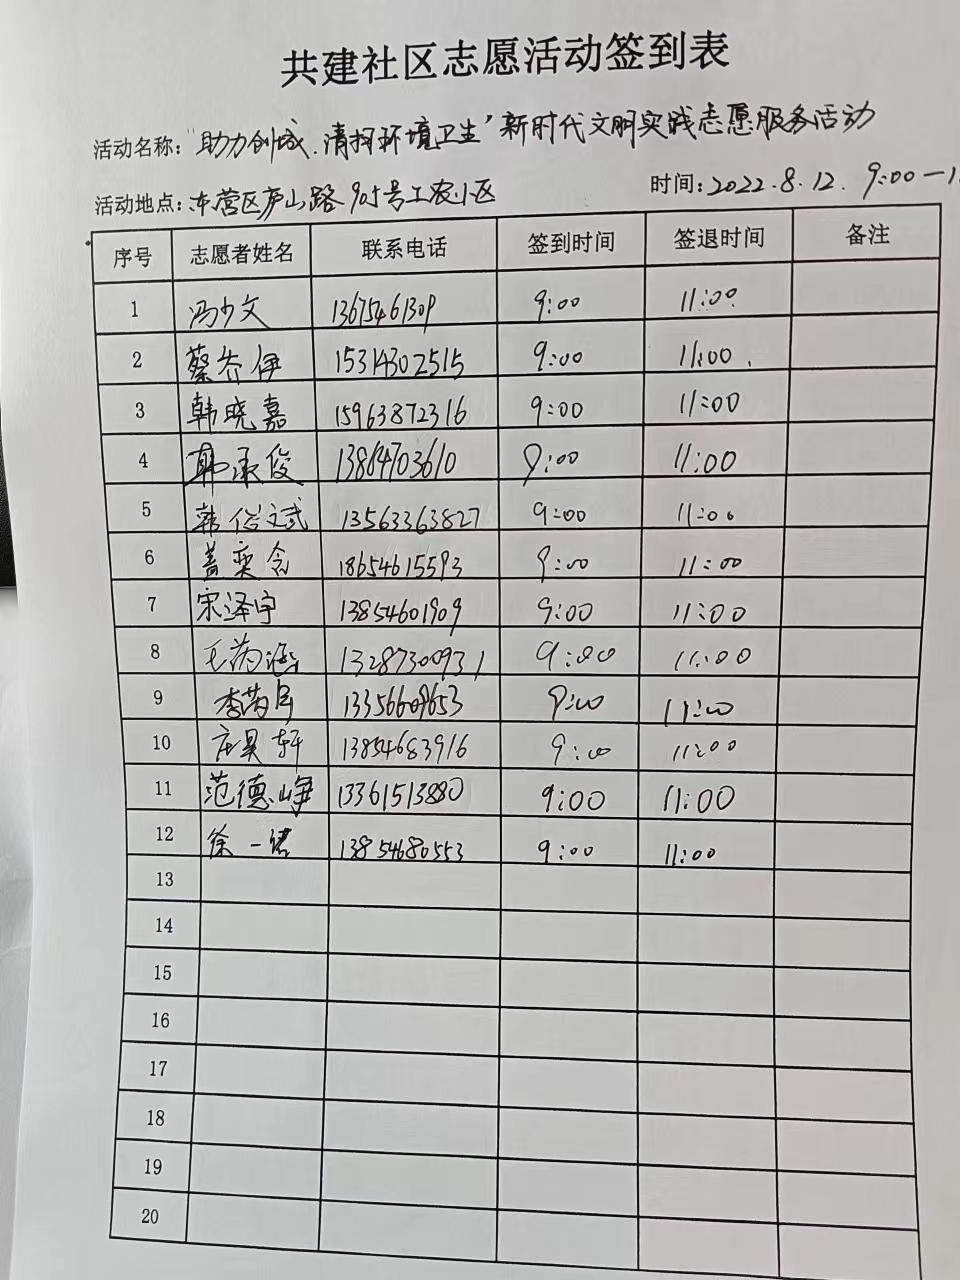 共建社区志愿活动签到表
活动名称:"助力创城.清扫环境卫生"新时代文明实践志愿服务活动
活动地点:东营区庐山路905号工农小区 时间:2022.8.12. 9:00—1
序号 志愿者姓名 联系电话 签到时间 签退时间 备注
1 冯少文 13675461309 9:00 11:00
2 蔡乔伊 15314302515 9:00 11:00
3 韩晓嘉 15963872316 9:00 11:00
4 韩承俊 13864703610 9:00 11:00
5 韩俊斌 13563363827 9:00 11:00
6 盖奕含 18654615593 9:00 11:00
7 宋泽宇 13854601909 9:00 11:00
8 13287300931 9:00 11:00
9 13356609653 9:00 11:00
10 庄昊轩 13854683916 9:00 11:00
11 范德峥 13361513880 9:00 11:00
12 徐一诺 13854680553 9:00 11:00
13
14
15
16
17
18
19
20